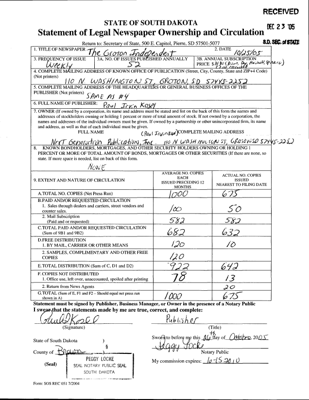 RECEIVED
DEC 27 '05
S.D. SEC. OF STATE
STATE OF SOUTH DAKOTA
Statement of Legal Newspaper Ownership and Circulation
Return to: Secretary of State, 500 E. Capitol, Pierre, SD 57501-5077
1. TITLE OF NEWSPAPER The Groton Independent
2. DATE
3. FREQUENCY OF ISSUE Weekly
3A. NO. OF ISSUES PUBLISHED ANNUALLY 52
3B. ANNUAL SUBSCRIPTION PRICE
4. COMPLETE MAILING ADDRESS OF KNOWN OFFICE OF PUBLICATION (Street, City, County, State and ZIP+4 Code) (Not printers)
110 N WASHINGTON ST, GROTON, SD 57445-2252
5. COMPLETE MAILING ADDRESS OF THE HEADQUARTERS OR GENERAL BUSINESS OFFICES OF THE PUBLISHER (Not printers)
SAME AS #4
6. FULL NAME OF PUBLISHER: Paul Irvin Kosel
7. OWNER (If owned by a corporation, its name and address must be stated and list on the back of this form the names and
addresses of stockholders owning or holding 1 percent or more of total amount of stock. If not owned by a corporation, the
names and addresses of the individual owners must be given. If owned by a partnership or other unincorporated firm, its name
and address, as well as that of each individual must be given.
FULL NAME
COMPLETE MAILING ADDRESS
Next Generation Publications, Inc.
8. KNOWN BONDHOLDERS, MORTGAGES, AND OTHER SECURITY HOLDERS OWNING OR HOLDING 1
PERCENT OR MORE OF TOTAL AMOUNT OF BONDS, MORTGAGES OR OTHER SECURITIES (If there are none, so
state. If more space is needed, list on back of this form.
NONE
9. EXTENT AND NATURE OF CIRCULATION
AVERAGE NO. COPIES EACH ISSUED PRECEDING 12 MONTHS
ACTUAL NO. COPIES ISSUED NEAREST TO FILING DATE
A. TOTAL NO. COPIES (Net Press Run) 1000 675
B. PAID AND/OR REQUESTED CIRCULATION
1. Sales through dealers and carriers, street vendors and counter sales 100 50
2. Mail Subscription (Paid and/or requested) 582 582
C. TOTAL PAID AND/OR REQUESTED CIRCULATION (Sum of 9B1 and 9B2) 682 632
D. FREE DISTRIBUTION
1. BY MAIL, CARRIER OR OTHER MEANS 120 10
2. SAMPLES, COMPLIMENTARY AND OTHER FREE COPIES 120
E. TOTAL DISTRIBUTION (Sum of C, D1 and D2) 922 642
F. COPIES NOT DISTRIBUTED
1. Office use, left over, unaccounted, spoiled after printing 78 13
2. Return from News Agents 20
G. TOTAL (Sum of E, F1 and F2 - Should equal net press run shown in A) 1000 675
Statement must be signed by Publisher, Business Manager, or Owner in the presence of a Notary Public
I swear that the statements made by me are true, correct, and complete:
Publisher
(Signature) (Title)
State of South Dakota )
County of Brown )
Sworn to before me this day of October, 2005
Peggy Locke
Notary Public
(Seal)
PEGGY LOCKE
SEAL NOTARY PUBLIC SEAL
SOUTH DAKOTA
My commission expires: